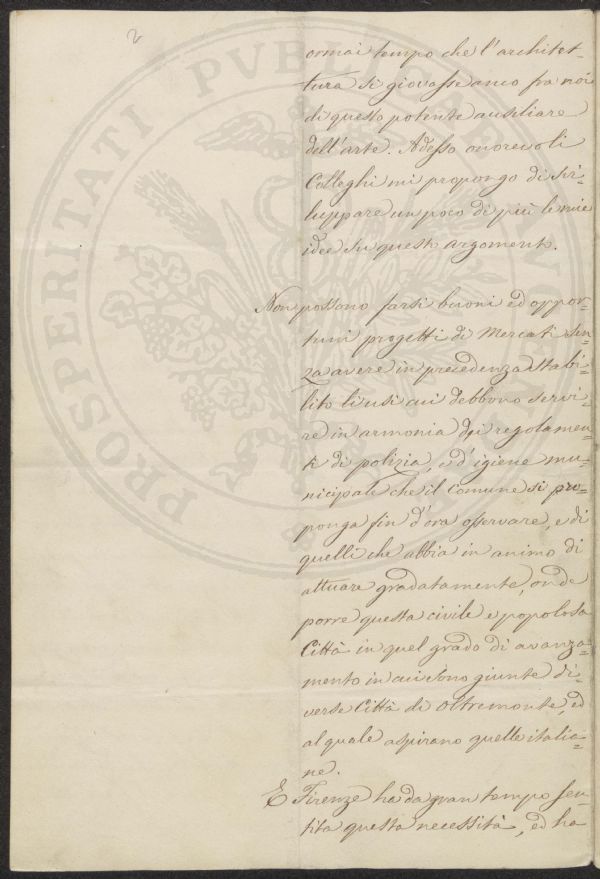 2
ormai tempo che l'architet-
tura si giovasse anco fra noi
di questo potente ausiliare
dell'arte. Adesso onorevoli
Colleghi mi propongo di svi-
luppare un poco di più le mie
idee su questi argomenti.
Non possono farsi buoni ed oppor-
tuni progetti di Mercati sen-
za avere in precedenza stabi-
lito li usi cui debbono servi-
re in armonia dei regolamen-
ti di polizia, e d'igiene mu-
nicipale che il Comune si pro-
ponga fin d'ora osservare, e di
quelli che abbia in animo di
attuare gradatamente, onde
porre questa civile e popolosa
Città in quel grado di avanza-
mento in cui sono giunte di-
verse Città di Oltremonte, ed
al quale aspirano quelle italia-
ne.
E Firenze ha da gran tempo sen-
tita questa necessità, ed ha
PROSPERITATI PVBLICAE AVG